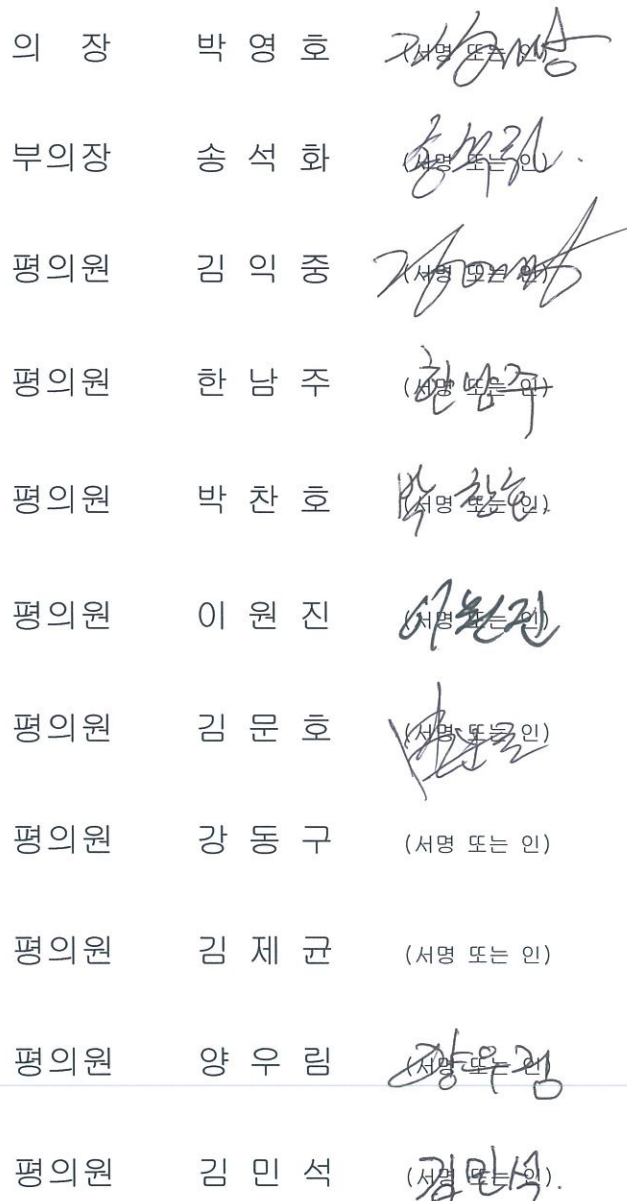 의 장 박 영 호 (서명 또는 인)
부의장 송 석 화 (서명 또는 인)
평의원 김 익 중 (서명 또는 인)
평의원 한 남 주 (서명 또는 인) 한남주
평의원 박 찬 호 (서명 또는 인) 박찬호
평의원 이 원 진 (서명 또는 인) 이원진
평의원 김 문 호 (서명 또는 인)
평의원 강 동 구 (서명 또는 인)
평의원 김 제 균 (서명 또는 인)
평의원 양 우 림 (서명 또는 인) 양우림
평의원 김 민 석 (서명 또는 인) 김민석.